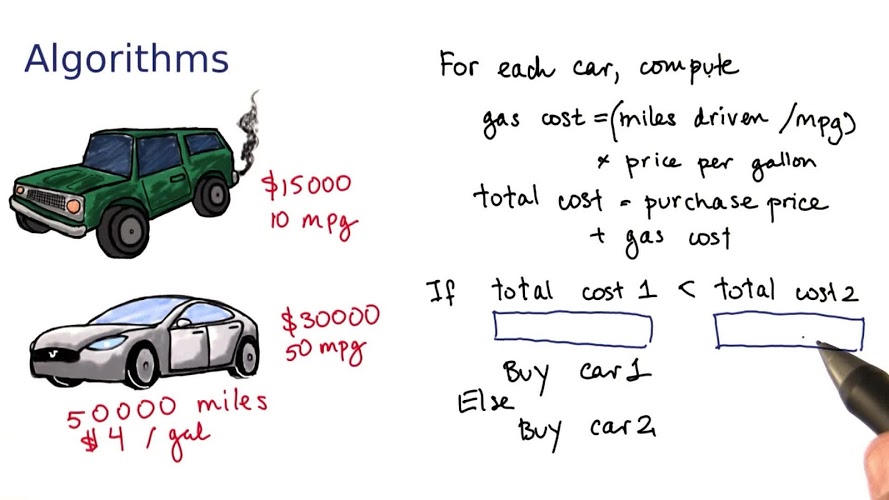 Algorithms
$15000
10 mpg
$30000
50 mpg
50000 miles
$4 / gal
For each car, compute
gas cost = (miles driven / mpg)
* price per gallon
total cost = purchase price
+ gas cost
If total cost 1 < total cost 2
Buy car 1
Else
Buy car 2